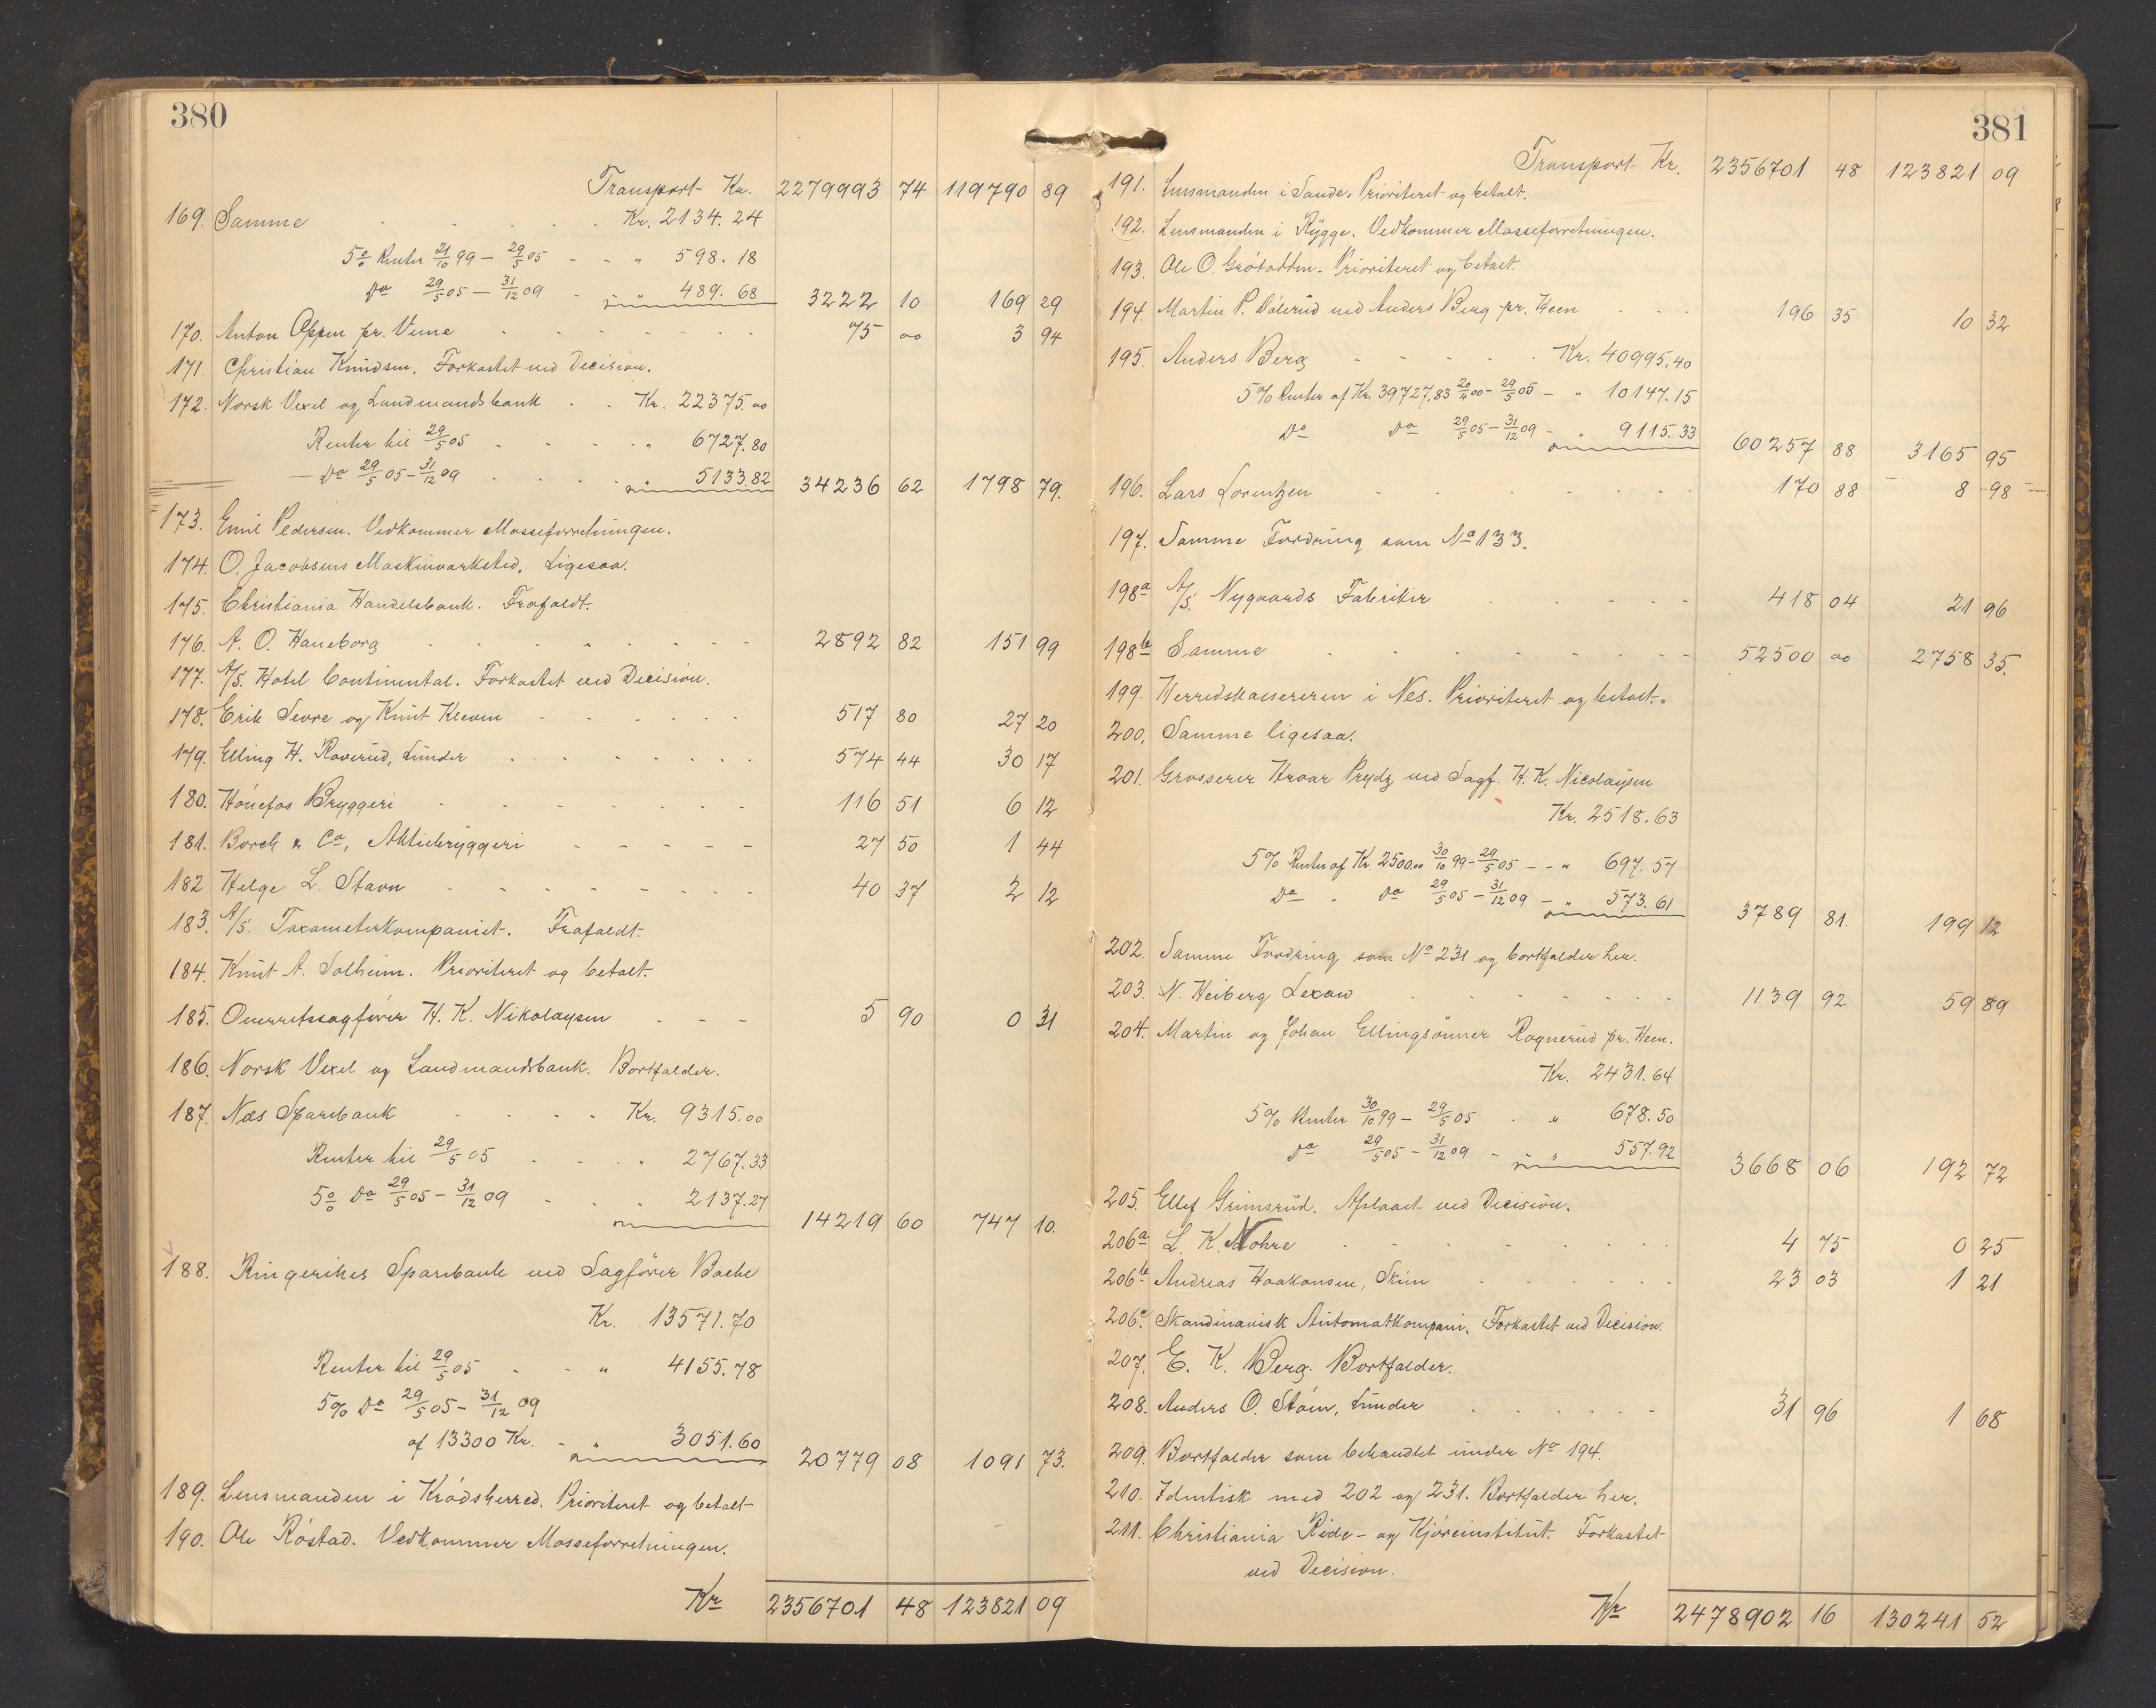 380
Transport Kr. 2279993 74 119790 89
169. Samme . . . . . Kr. 2134.24
5 0/0 Renter 21/10 99 – 29/5 05 - - " 598.18
Do 29/5 05 – 31/12 09 - - " 489.68 3222 10 169 29
170. Anton Oppen pr. Veme . . . . . . . 75 00 3 94
171. Christian Knudsen. Forkastet ved Decision.
172. Norsk Vexel og Landmandsbank . . Kr. 22375.00
Renter til 29/5 05 . . . . " 6727.80
– Do 29/5 05 – 31/12 09 . . . . " 5133.82 34236 62 1798 79.
173. Emil Pedersen. Vedkommer Masseforretningen.
174. O. Jacobsens Maskinværksted. Ligesaa.
175. Christiania Handelsbank. Frafaldt.
176. A. O. Haneborg . . . . . . . 2892 82 151 99
177. A/S. Hotel Continental. Forkastet ved Decision.
178. Erik Sevre og Knut Kleven . . . . . 517 80 27 20
179. Elling H. Roverud, Lunder . . . . . . 574 44 30 17
180. Hönefos Bryggeri . . . . . . . 116 51 6 12
181. Borch & Co, Aktiebryggeri - - - - - 27 50 1 44
182 Helge L. Stavn . . . . . . . 40 37 2 12
183. A/S. Taxameterkompaniet. Frafaldt.
184. Knut A. Solheim. Prioriteret og betalt.
185. Overretssagförer H. K. Nikolaysen - - - 5 90 0 31
186. Norsk Vexel og Landmandsbank. Bortfalder.
187. Næs Sparebank . . . . Kr. 9315.00
Renter til 29/5 05 . . . . " 2767.33
5 0/0 Do 29/5 05 – 31/12 09 . . . " 2137.27
14219 60 747 10.
188. Ringerikes Sparebank ved Sagförer Bache
Kr. 13571.70
Renter til 29/5 05 . . - " 4155.78
5% Do 29/5 05 – 31/12 09
af 13300 Kr. - " 3051.60 20779 08 1091 73.
189. Lensmanden i Krödsherred. Prioriteret og betalt
190. Ole Röstad. Vedkommer Masseforretningen.
Kr 2356701 48 123821 09
381
Transport Kr. 2356701 48 123821 09
191. Lensmanden i Sande. Prioriteret og betalt.
192. Lensmanden i Rygge. Vedkommer Masseforretningen.
193. Ole O. Prioriteret og betalt.
194. Martin P. Dölerud ved Anders Berg pr. Heen . . . 196 35 10 32
195. Anders Berg - - - - . Kr. 40995.40
5% Renter af Kr. 39727.83 20/4 00 – 29/5 05 – " 10147.15
Do Do 29/5 05 – 31/12 09 – " 9115.33 60257 88 3165 95
196. Lars Lorentzen . . . . . . . 170 88 8 98
197. Samme Fordring som No 133.
198a A/S. Nygaards Fabriker . . . . . 418 04 21 96
198b Samme . . . . . . . . 52500 00 2758 35.
199. Herredskassereren i Nes. Prioriteret og betalt.
200. Samme ligesaa.
201. Grosserer Hroar Prydz ved Sagf. H. K. Nicolaysen
Kr. 2518.63
5% Renter af Kr. 2500.00 30/10 99 – 29/5 05 – - " 697.57
Do " Do 29/5 05 – 31/12 09 – " 573.61 3789 81. 199 12
202. Samme Fordring som No 231 og bortfalder her.
203. N. Heiberg Lexow . . . . . . . 1139 92 59 89
204. Martin og Johan Ellingsönner Rognerud pr. Heen.
Kr. 2431.64
5% Renter 30/10 99 – 29/5 05 . " 678.50
Do 29/5 05 – 31/12 09 - - " 557.92 3668 06 192 72
205. Ellef Grimsrud. Afslaaet ved Decision.
206a L. K. Nohre . . . . . . . . 4 75 0 25
206b Andreas Haakonsen, Skun . . . . . . 23 03 1 21
206c. Skandinavisk Automatkompani. Forkastet ved Decision.
207. E. K. Berg. Bortfalder.
208. Anders O. Stöen, Lunder . . . . . . 31 96 1 68
209. Bortfalder som behandlet under No 194.
210. Identisk med 202 og 231. Bortfalder her.
211. Christiania Ride- og Kjöreinstitut. Forkastet
ved Decision.
Kr 2478902 16 130241 52